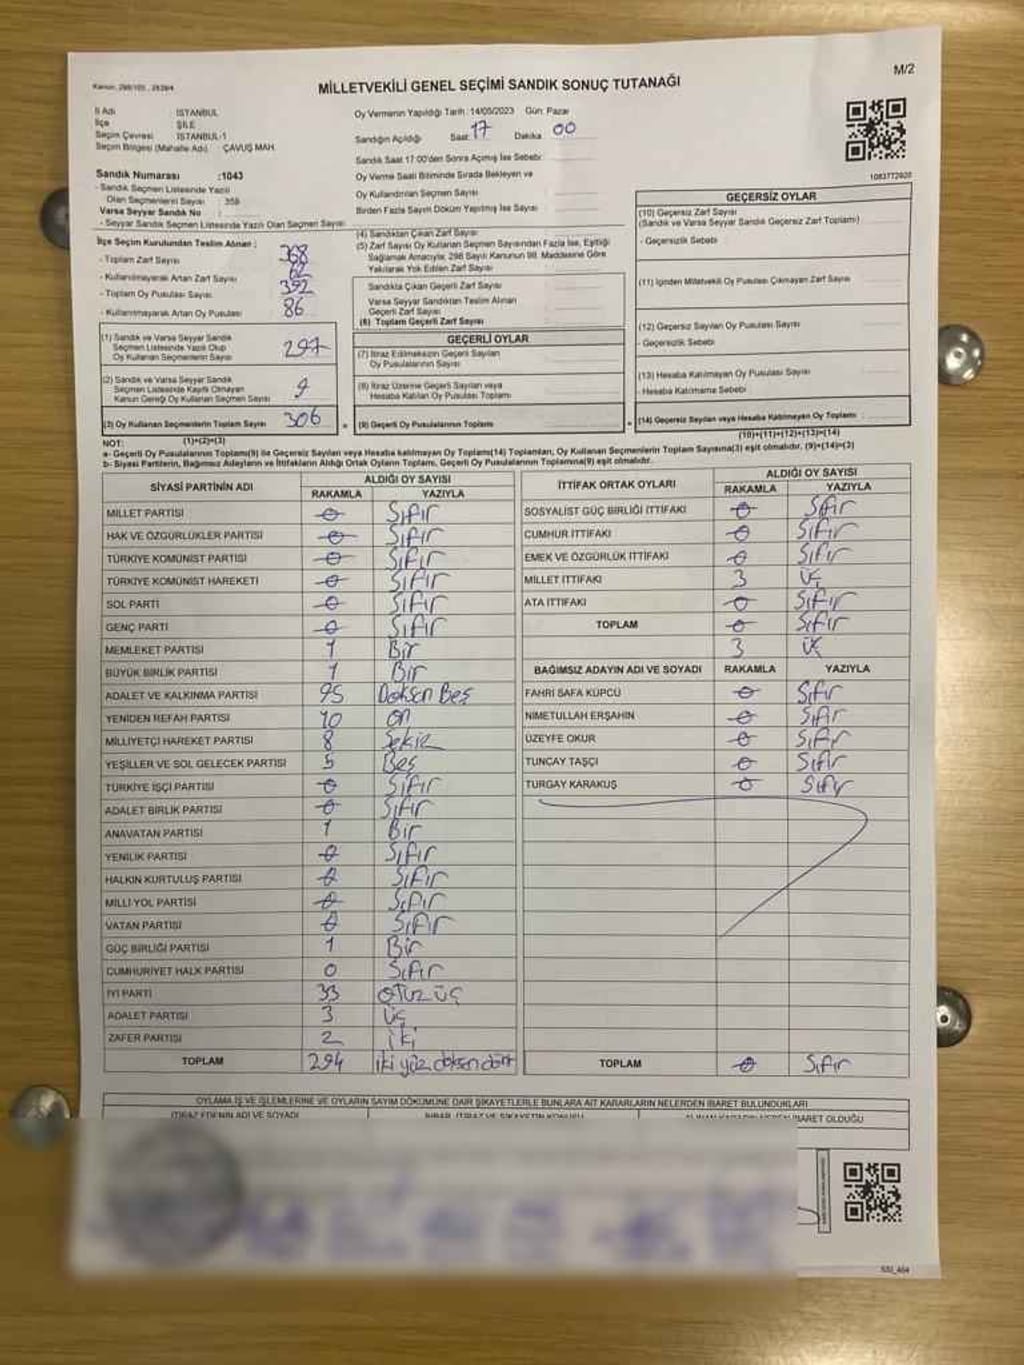 M/2
Kanun: 298/105 , 2839/4
MİLLETVEKİLİ GENEL SEÇİMİ SANDIK SONUÇ TUTANAĞI
İl Adı : İSTANBUL
İlçe : ŞİLE
Seçim Çevresi : İSTANBUL-1
Seçim Bölgesi (Mahalle Adı) : ÇAVUŞ MAH.
Sandık Numarası :1043
- Sandık Seçmen Listesinde Yazılı
Olan Seçmenlerin Sayısı : 358
Varsa Seyyar Sandık No :
- Seyyar Sandık Seçmen Listesinde Yazılı Olan Seçmen Sayısı
İlçe Seçim Kurulundan Teslim Alınan ;
- Toplam Zarf Sayısı 368
- Kullanılmayarak Artan Zarf Sayısı 62
- Toplam Oy Pusulası Sayısı 392
- Kullanılmayarak Artan Oy Pusulası 86
(1) Sandık ve Varsa Seyyar Sandık
Seçmen Listesinde Yazılı Olup
Oy Kullanan Seçmenlerin Sayısı 297
(2) Sandık ve Varsa Seyyar Sandık
Seçmen Listesinde Kayıtlı Olmayan
Kanun Gereği Oy Kullanan Seçmen Sayısı 9
(3) Oy Kullanan Seçmenlerin Toplam Sayısı 306
(1)+(2)=(3)
Oy Vermenin Yapıldığı Tarih: 14/05/2023 Gün: Pazar
Sandığın Açıldığı Saat: 17 Dakika 00
Sandık Saat 17:00'den Sonra Açılmış İse Sebebi:
Oy Verme Saati Bitiminde Sırada Bekleyen ve
Oy Kullandırılan Seçmen Sayısı
Birden Fazla Sayım Döküm Yapılmış İse Sayısı
(4) Sandıktan Çıkan Zarf Sayısı
(5) Zarf Sayısı Oy Kullanan Seçmen Sayısından Fazla İse, Eşitliği
Sağlamak Amacıyla, 298 Sayılı Kanunun 98. Maddesine Göre
Yakılarak Yok Edilen Zarf Sayısı
Sandıkta Çıkan Geçerli Zarf Sayısı
Varsa Seyyar Sandıktan Teslim Alınan
Geçerli Zarf Sayısı
(6) Toplam Geçerli Zarf Sayısı
GEÇERLİ OYLAR
(7) İtiraz Edilmeksizin Geçerli Sayılan
Oy Pusulalarının Sayısı
(8) İtiraz Üzerine Geçerli Sayılan veya
Hesaba Katılan Oy Pusulası Toplamı
(9) Geçerli Oy Pusulalarının Toplamı
1083772920
GEÇERSİZ OYLAR
(10) Geçersiz Zarf Sayısı
(Sandık ve Varsa Seyyar Sandık Geçersiz Zarf Toplamı)
- Geçersizlik Sebebi
(11) İçinden Milletvekili Oy Pusulası Çıkmayan Zarf Sayısı
(12) Geçersiz Sayılan Oy Pusulası Sayısı
- Geçersizlik Sebebi
(13) Hesaba Katılmayan Oy Pusulası Sayısı
- Hesaba Katılmama Sebebi
(14) Geçersiz Sayılan veya Hesaba Katılmayan Oy Toplamı
(10)+(11)+(12)+(13)=(14)
NOT:
a- Geçerli Oy Pusulalarının Toplamı(9) ile Geçersiz Sayılan veya Hesaba katılmayan Oy Toplamı(14) Toplamları, Oy Kullanan Seçmenlerin Toplam Sayısına(3) eşit olmalıdır. (9)+(14)=(3)
b- Siyasi Partilerin, Bağımsız Adayların ve İttifakların Aldığı Ortak Oyların Toplamı, Geçerli Oy Pusulalarının Toplamına(9) eşit olmalıdır.
SİYASİ PARTİNİN ADI ALDIĞI OY SAYISI
RAKAMLA YAZIYLA
MİLLET PARTİSİ 0 Sıfır
HAK VE ÖZGÜRLÜKLER PARTİSİ 0 Sıfır
TÜRKİYE KOMÜNİST PARTİSİ 0 Sıfır
TÜRKİYE KOMÜNİST HAREKETİ 0 Sıfır
SOL PARTİ 0 Sıfır
GENÇ PARTİ 0 Sıfır
MEMLEKET PARTİSİ 1 Bir
BÜYÜK BİRLİK PARTİSİ 1 Bir
ADALET VE KALKINMA PARTİSİ 95 Doksan Beş
YENİDEN REFAH PARTİSİ 10 On
MİLLİYETÇİ HAREKET PARTİSİ 8 Sekiz
YEŞİLLER VE SOL GELECEK PARTİSİ 5 Beş
TÜRKİYE İŞÇİ PARTİSİ 0 Sıfır
ADALET BİRLİK PARTİSİ 0 Sıfır
ANAVATAN PARTİSİ 1 Bir
YENİLİK PARTİSİ 0 Sıfır
HALKIN KURTULUŞ PARTİSİ 0 Sıfır
MİLLİ YOL PARTİSİ 0 Sıfır
VATAN PARTİSİ 0 Sıfır
GÜÇ BİRLİĞİ PARTİSİ 1 Bir
CUMHURİYET HALK PARTİSİ 0 Sıfır
İYİ PARTİ 33 Otuz üç
ADALET PARTİSİ 3 üç
ZAFER PARTİSİ 2 iki
TOPLAM 294 iki yüz doksan dört
İTTİFAK ORTAK OYLARI ALDIĞI OY SAYISI
RAKAMLA YAZIYLA
SOSYALİST GÜÇ BİRLİĞİ İTTİFAKI 0 Sıfır
CUMHUR İTTİFAKI 0 Sıfır
EMEK VE ÖZGÜRLÜK İTTİFAKI 0 Sıfır
MİLLET İTTİFAKI 3 üç
ATA İTTİFAKI 0 Sıfır
TOPLAM 0 Sıfır
3 üç
BAĞIMSIZ ADAYIN ADI VE SOYADI RAKAMLA YAZIYLA
FAHRİ SAFA KÜPCÜ 0 Sıfır
NİMETULLAH ERŞAHİN 0 Sıfır
ÜZEYFE OKUR 0 Sıfır
TUNCAY TAŞÇI 0 Sıfır
TURGAY KARAKUŞ 0 Sıfır
TOPLAM 0 Sıfır
OYLAMA İŞ VE İŞLEMLERİNE VE OYLARIN SAYIM DÖKÜMÜNE DAİR ŞİKAYETLERLE BUNLARA AİT KARARLARIN NELERDEN İBARET BULUNDUKLARI
İTİRAZ EDENİN ADI VE SOYADI